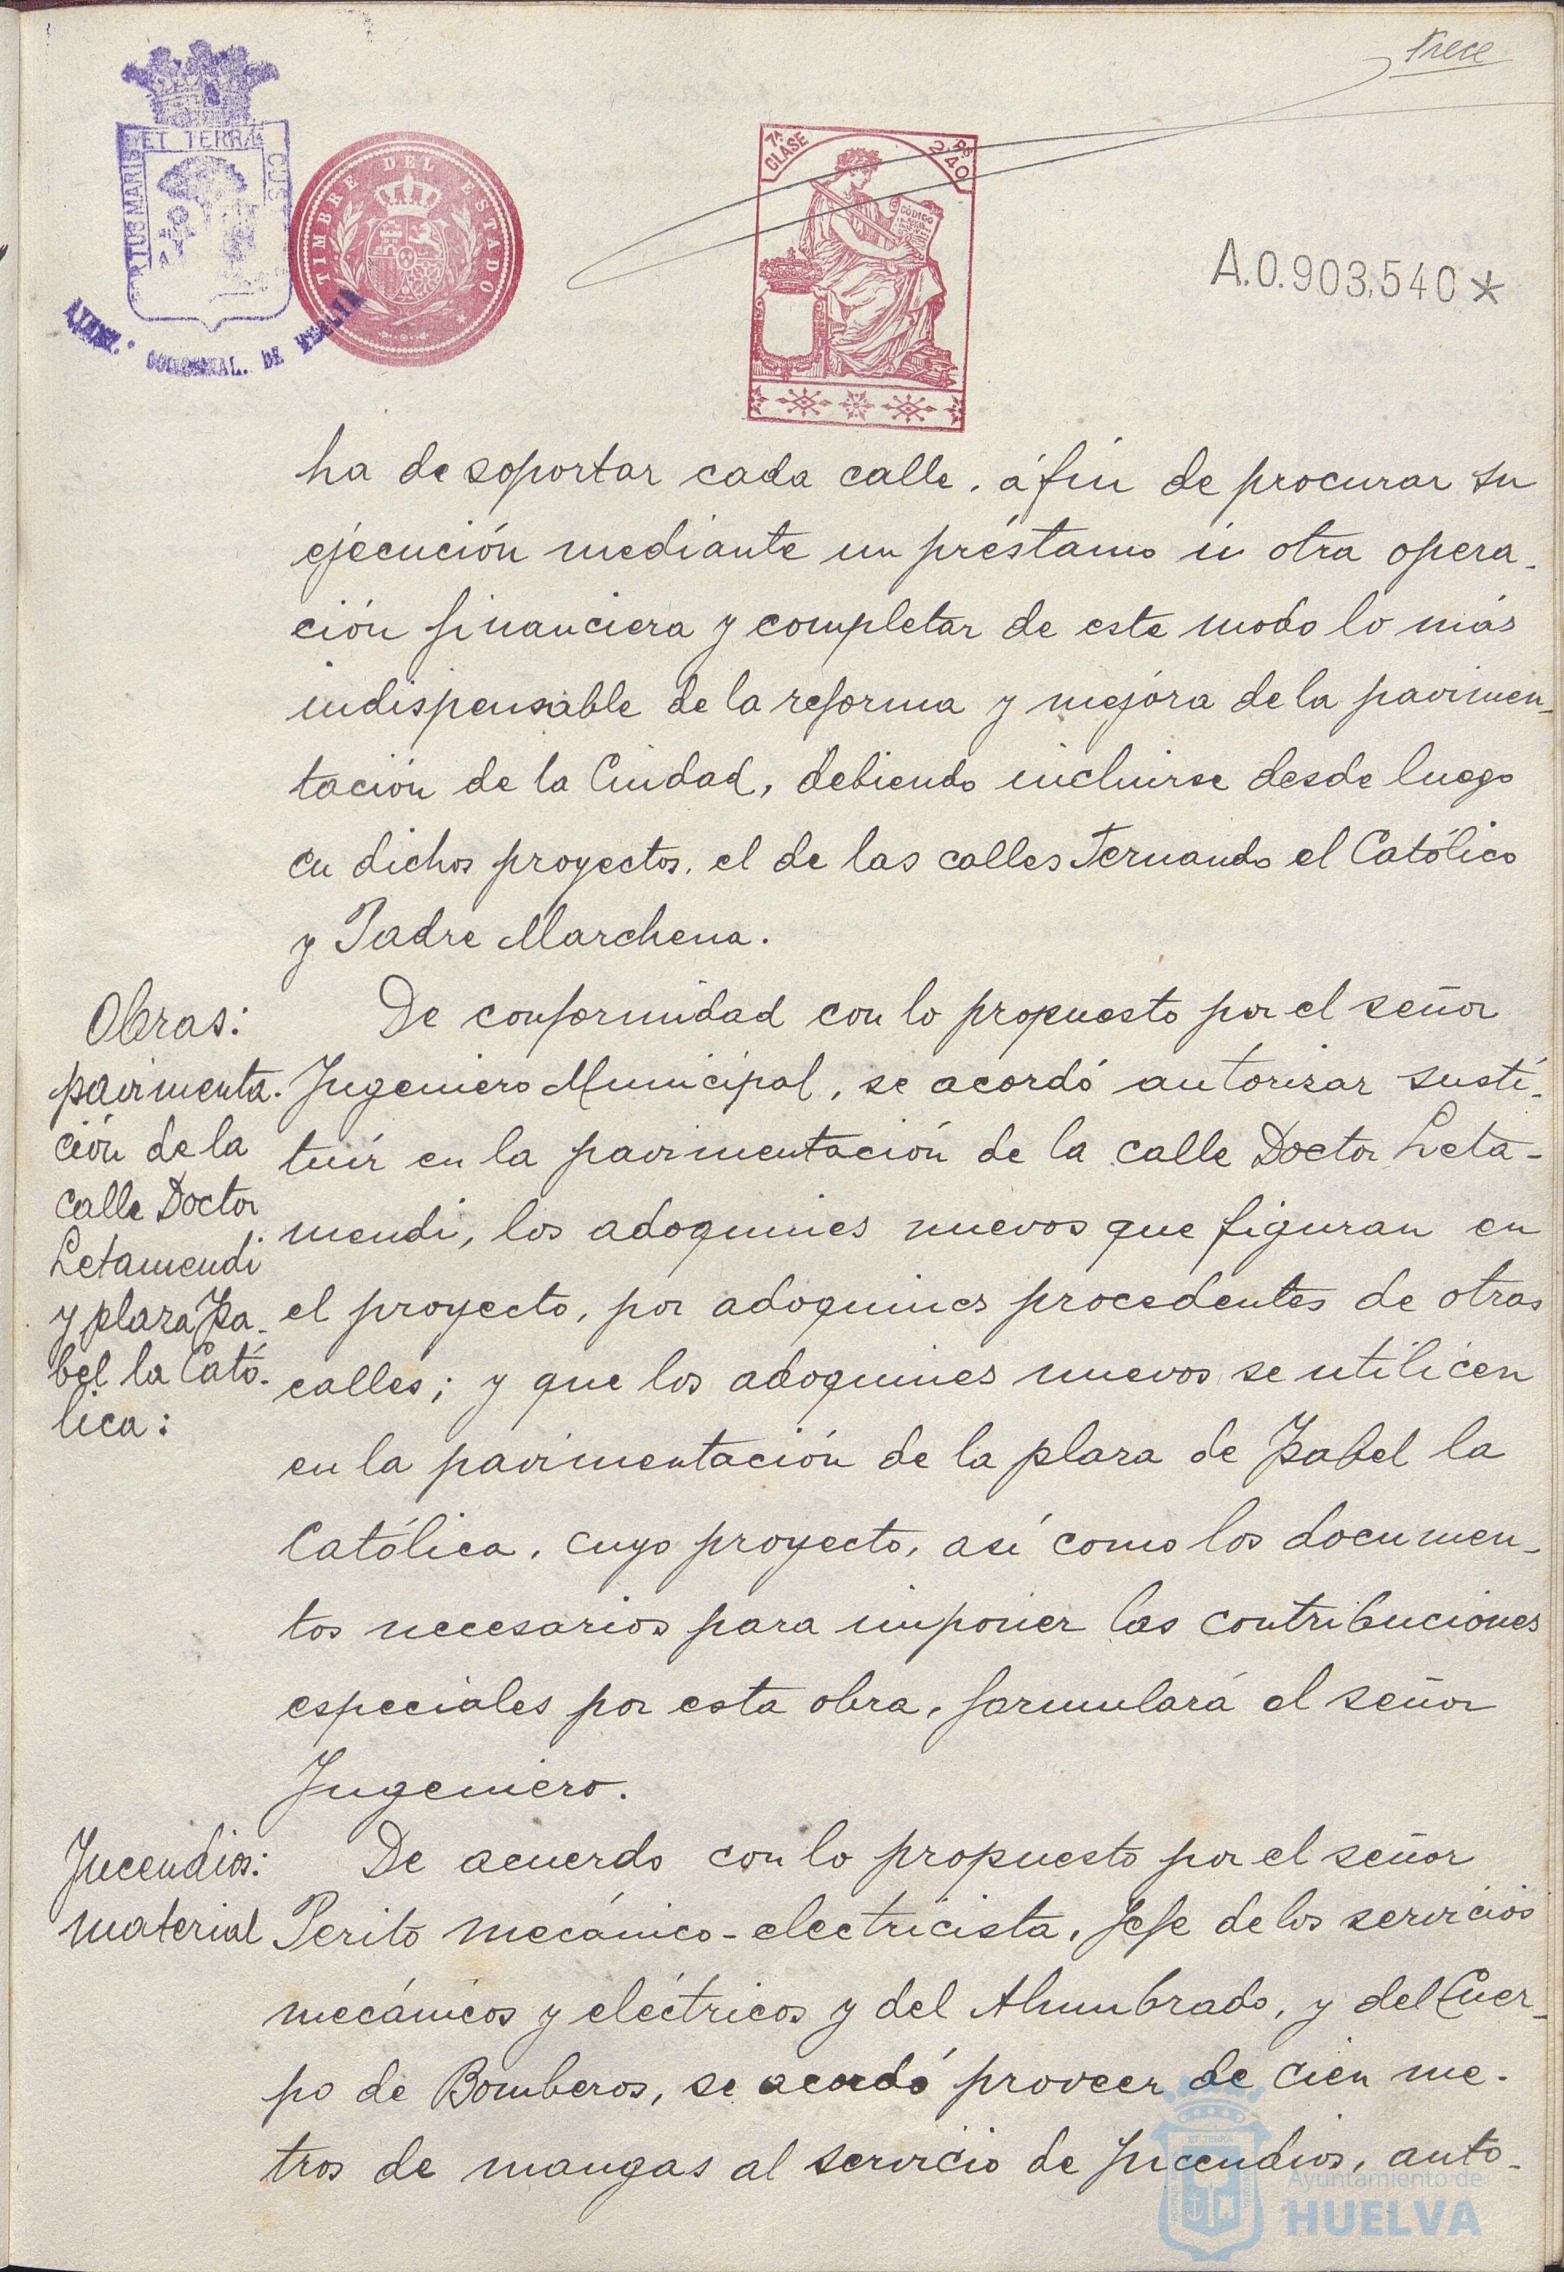 trece
ET TERRÆ CUS
PORTUS MARIS
AYUNT.º CONSTITUCIONAL. DE HUELVA
TIMBRE DEL ESTADO
7ª CLASE
Pts 2'40
CÓDIGO
A.0.903,540*
ha de soportar cada calle, á fin de procurar su
ejecución mediante un préstamo ú otra opera-
ción financiera y completar de este modo lo más
indispensable de la reforma y mejora de la pavimen-
tación de la Ciudad, debiendo incluirse desde luego
en dichos proyectos, el de las calles Fernando el Católico
y Padre Marchena.
Obras:
pavimenta-
ción de la
calle Doctor
Letamendi
y plaza Isa-
bel la Cató-
lica:
De conformidad con lo propuesto por el señor
Ingeniero Municipal, se acordó autorizar susti-
tuír en la pavimentación de la calle Doctor Leta-
mendi, los adoquines nuevos que figuran en
el proyecto, por adoquines procedentes de otras
calles; y que los adoquines nuevos se utilicen
en la pavimentación de la plaza de Isabel la
Católica, cuyo proyecto, así como los documen-
tos necesarios para imponer las contribuciones
especiales por esta obra, formulará el señor
Ingeniero.
Incendios:
material
De acuerdo con lo propuesto por el señor
Perito mecánico-electricista, Jefe de los servicios
mecánicos y eléctricos y del Alumbrado, y del Cuer-
po de Bomberos, se acordó proveer de cien me-
tros de mangas al servicio de Incendios, auto-
Ayuntamiento de
HUELVA